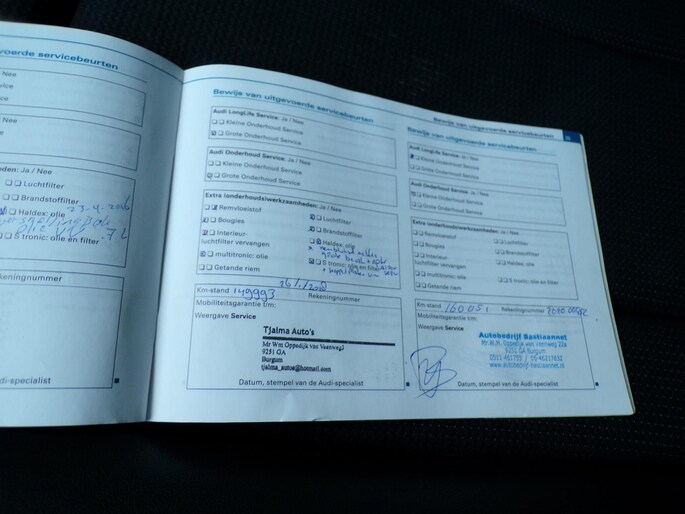 voerde servicebeurten
Nee
vice
Nee
vice
den: Ja / Nee
Luchtfilter
Brandstoffilter
Haldex: olie
23-4-2016
S tronic: olie en filter
7 L
Rekeningnummer
Audi-specialist
Bewijs van uitgevoerde servicebeurten
Audi LongLife Service: Ja / Nee
Kleine Onderhoud Service
Grote Onderhoud Service
Audi Onderhoud Service: Ja / Nee
Kleine Onderhoud Service
Grote Onderhoud Service
Extra (onderhouds)werkzaamheden: Ja / Nee
Remvloeistof
Luchtfilter
Bougies
Brandstoffilter
Interieur-
luchtfilter vervangen
Haldex: olie
multitronic: olie
S tronic: olie en filter
Getande riem
Km-stand 149993
Rekeningnummer
Mobiliteitsgarantie t/m:
Weergave Service
Tjalma Auto's
Mr Wm Oppedijk van Veenweg2
9251 GA
Burgum
tjalma_autos@hotmail.com
Datum, stempel van de Audi-specialist
Bewijs van uitgevoerde servicebeurten
Bewijs van uitgevoerde servicebeurten
Audi LongLife Service: Ja / Nee
Kleine Onderhoud Service
Grote Onderhoud Service
Audi Onderhoud Service: Ja / Nee
Kleine Onderhoud Service
Grote Onderhoud Service
Extra (onderhouds)werkzaamheden: Ja / Nee
Remvloeistof
Luchtfilter
Bougies
Brandstoffilter
Interieur-
luchtfilter vervangen
Haldex: olie
multitronic: olie
S tronic: olie en filter
Getande riem
Km-stand 160.051
Rekeningnummer
Mobiliteitsgarantie t/m:
Weergave Service
Autobedrijf Bastiaannet
Mr.W.M. Oppedijk van Veenweg 22a
9251 GA Burgum
0511-461755 / 06-46217632
www.autobedrijf-bastiaannet.nl
Datum, stempel van de Audi-specialist